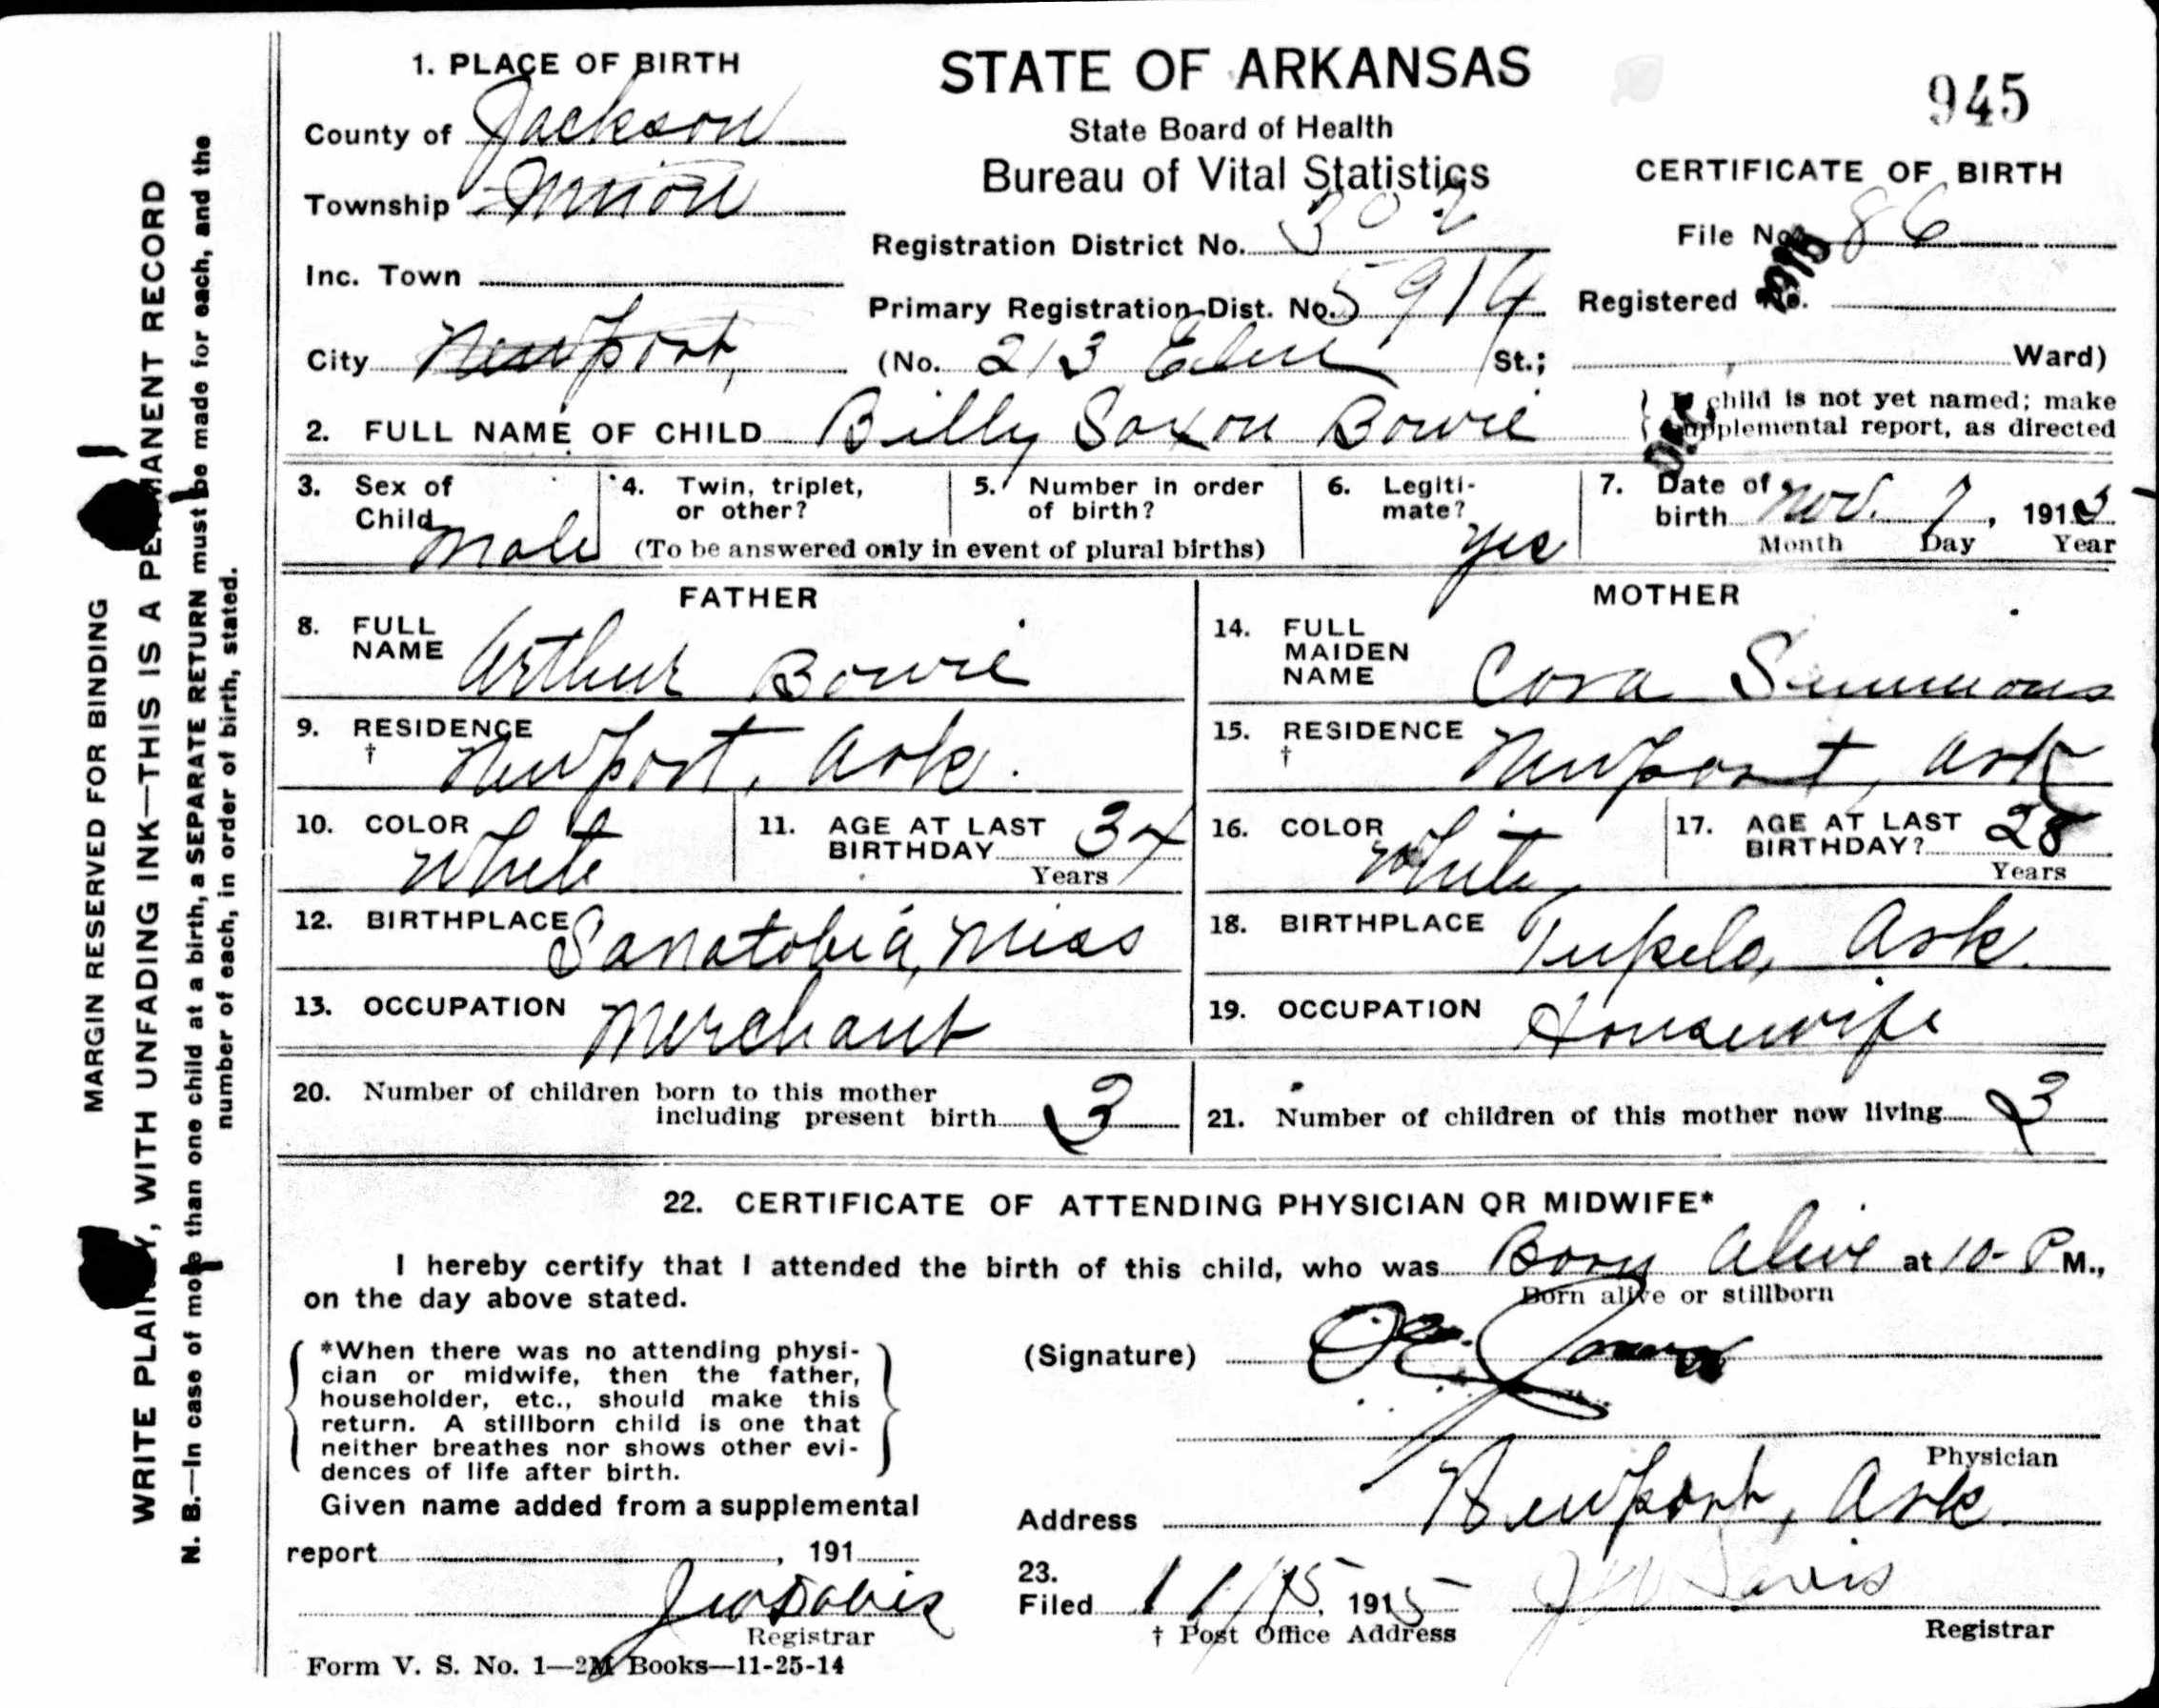 1. PLACE OF BIRTH
County of Jackson
Township Union
Inc. Town
City Newport,
STATE OF ARKANSAS
State Board of Health
Bureau of Vital Statistics
Registration District No. 302
Primary Registration Dist. No. 5914
(No. 213 Elm St.; Ward)
945
CERTIFICATE OF BIRTH
File No. 86
Registered No.
2. FULL NAME OF CHILD Billy Saxon Bowie
If child is not yet named; make
supplemental report, as directed
3. Sex of Child Male
4. Twin, triplet, or other?
5. Number in order of birth?
(To be answered only in event of plural births)
6. Legiti-mate? yes
7. Date of birth Nov. 7, 1915
Month Day Year
FATHER
8. FULL NAME Arthur Bowie
9. RESIDENCE † Newport, Ark.
10. COLOR White
11. AGE AT LAST BIRTHDAY 34 Years
12. BIRTHPLACE Sanatobia, Miss
13. OCCUPATION Merchant
MOTHER
14. FULL MAIDEN NAME Cora Simmons
15. RESIDENCE † Newport, Ark
16. COLOR White
17. AGE AT LAST BIRTHDAY? 28 Years
18. BIRTHPLACE Tupelo, Ark.
19. OCCUPATION Housewife
20. Number of children born to this mother
including present birth 3
21. Number of children of this mother now living 3
22. CERTIFICATE OF ATTENDING PHYSICIAN OR MIDWIFE*
I hereby certify that I attended the birth of this child, who was Born Alive at 10- P M.,
on the day above stated.
Born alive or stillborn
*When there was no attending physi-
cian or midwife, then the father,
householder, etc., should make this
return. A stillborn child is one that
neither breathes nor shows other evi-
dences of life after birth.
Given name added from a supplemental
report , 191
Jno Davis
Registrar
Form V. S. No. 1—2M Books—11-25-14
(Signature) O.E. Jones
Physician
Address Newport, Ark.
23.
Filed 11/15, 1915
Davis
† Post Office Address
Registrar
MARGIN RESERVED FOR BINDING
WRITE PLAINLY, WITH UNFADING INK—THIS IS A PERMANENT RECORD
N. B.—In case of more than one child at a birth, a SEPARATE RETURN must be made for each, and the
number of each, in order of birth, stated.